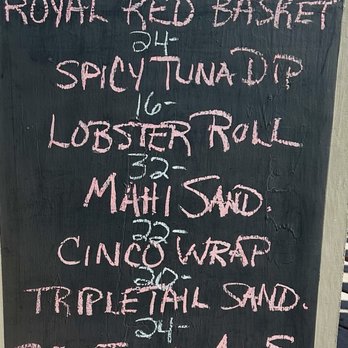 ROYAL RED BASKET
24-
SPICY TUNA DIP
16-
LOBSTER ROLL
32-
MAHI SAND.
22-
CINCO WRAP
20-
TRIPLETAIL SAND.
24-